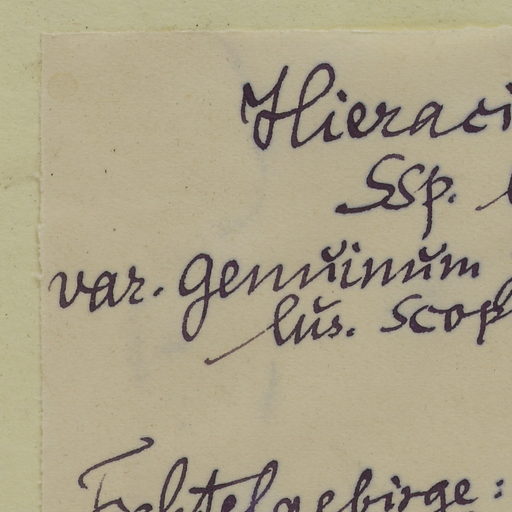 Hieraci
SSp.
var. genuinum
lus. scop
Fichtelgebirge: